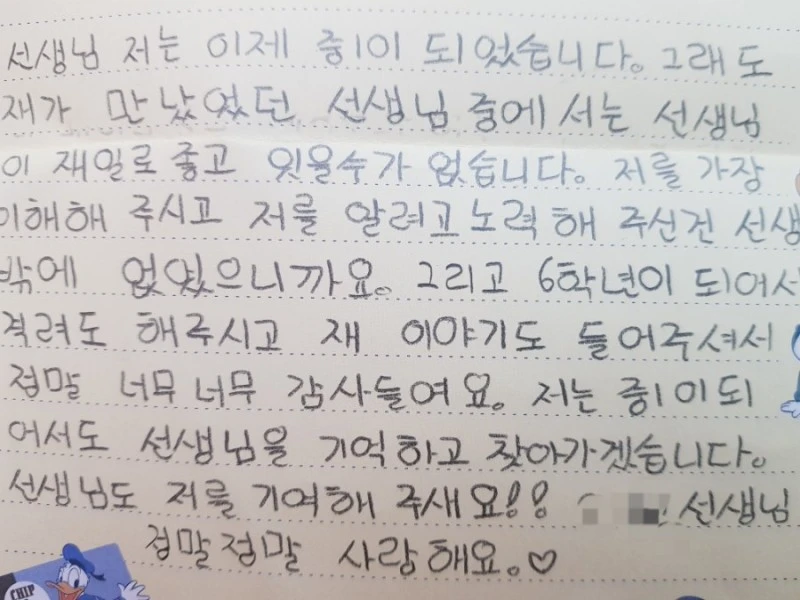 선생님 저는 이제 중1이 되었습니다. 그래도
재가 만났었던 선생님 중에서는 선생님
이 재일로 좋고 잊을수가 없습니다. 저를 가장
이해해 주시고 저를 알려고 노력 해 주신건 선생
밖에 없었으니까요. 그리고 6학년이 되어서
격려도 해주시고 재 이야기도 들어주셔서
정말 너무 너무 감사들여요. 저는 중1이 되
어서도 선생님을 기억하고 찾아가겠습니다.
선생님도 저를 기억해 주새요!! 선생님
정말정말 사랑해요.♡
CHIP